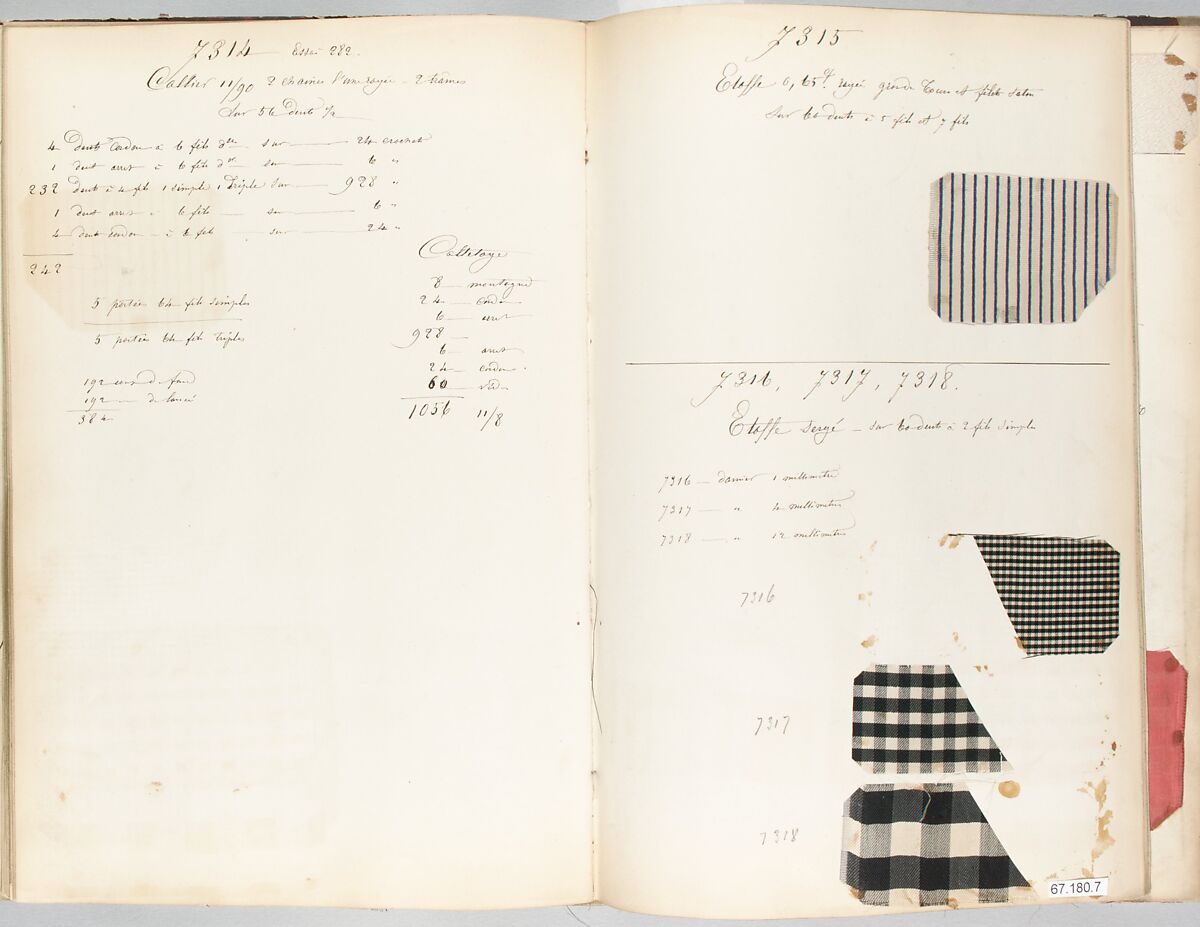 7314 Essai 282.
11/90 2 chaines l'une rayée - 2 trames
Sur 56 dents 1/2
4 dents cordon à 6 fils d^le sur 24 crochet
1 dent arret à 6 fils d^le sur 6 "
232 dents à 4 fils 1 simple 1 triple sur 928 "
1 dent arret à 6 fils sur 6 "
4 dents cordon à 6 fils sur 24 "
242
5 portées 64 fils simples
5 portées 64 fils triples
192 de fond
192 de lancé
384
Colletage
8 montagne
24 cordon
6 arret
928
6 arret
24 cordon
60 vide
1056 11/8
7315
Etoffe 0,65^c rayée grande et filets satin
Sur 60 dents à 5 fils et 7 fils
7316, 7317, 7318.
Etoffe sergé - sur 60 dents à 2 fils simples
7316 — damier 1 millimetre
7317 — " 4 millimetres
7318 — " 12 millimetres
7316
7317
7318
67.180.7